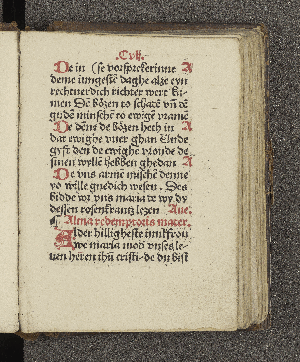 .Cvij.
De in (se vorsprekerinne A
deme inngestē daghe alze eyn
rechtuerdich richter wert ka-
men Dē bōzen to schatē vñ dē
gudē minschē to ewigē vramē
De dēns de bōzen heth in A
dat ewighe vuer ghan Unde
gyft den de ewighe vronde de
sinen wyllē hebben ghedan A
De vns armē minschē denne
yo wille gnedich wesen. Des
bidde wy vns maria w wy dy
dessen rosenkrantz lezen Aue.
Alma redemptoris mater.
Alder hilligheste iunkfrou
we maria mod vnses le-
uen heren ihū cristi de du bist